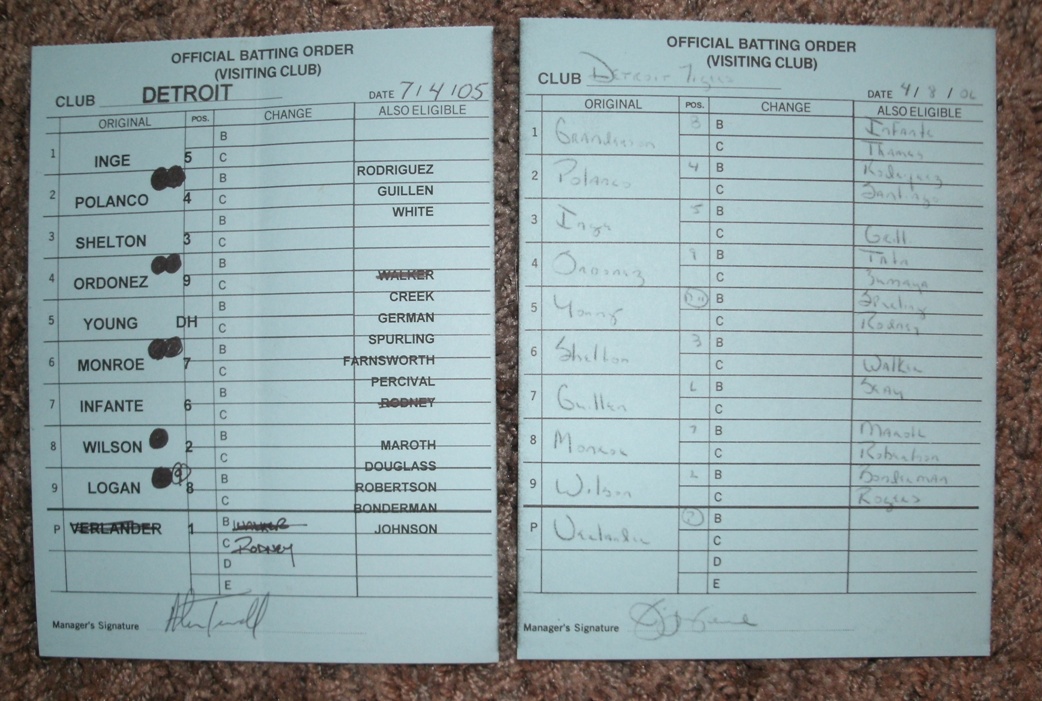 OFFICIAL BATTING ORDER
(VISITING CLUB)
CLUB DETROIT DATE 7/4/05
ORIGINAL POS. CHANGE ALSO ELIGIBLE
B
1 INGE 5 C
RODRIGUEZ
B
GUILLEN
2 POLANCO 4 C
WHITE
B
3 SHELTON 3 C
B
WALKER
4 ORDONEZ 9 C
CREEK
B
GERMAN
5 YOUNG DH C
SPURLING
B
FARNSWORTH
6 MONROE 7 C
PERCIVAL
B
RODNEY
7 INFANTE 6 C
B
MAROTH
8 WILSON 2 C
DOUGLASS
B
ROBERTSON
9 LOGAN 8 C
BONDERMAN
P VERLANDER 1 B WALKER JOHNSON
C RODNEY
D
E
Manager's Signature
OFFICIAL BATTING ORDER
(VISITING CLUB)
CLUB Detroit Tigers
DATE 4/8/06
ORIGINAL POS. CHANGE ALSO ELIGIBLE
1 Granderson 8 B Infante
C Thames
2 Polanco 4 B Rodriguez
C Santiago
3 Inge 5 B
C
4 Ordonez 9 B
C Zumaya
5 Young B Spurling
C Rodney
6 Shelton 3 B
C Walker
7 Guillen B Seay
C
8 Monroe 7 B Maroth
C Robertson
9 Wilson B Bonderman
C Rogers
P Verlander B
C
D
E
Manager's Signature